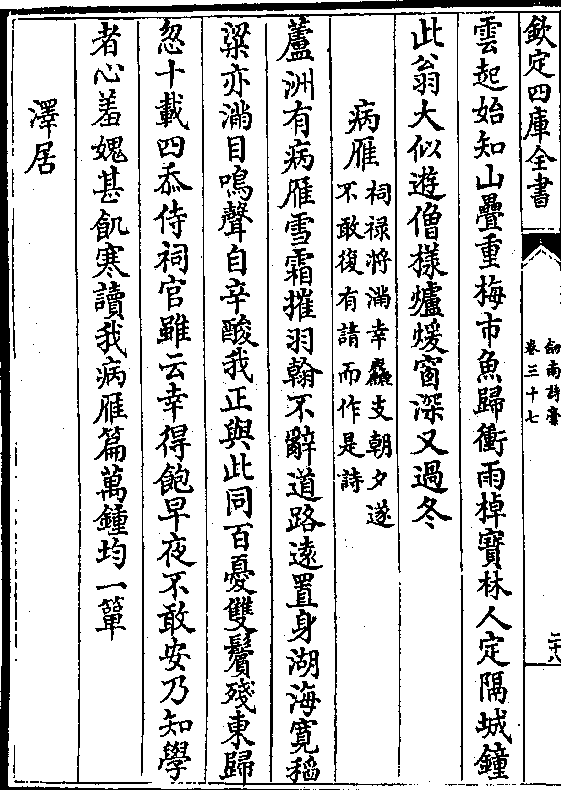 欽定四庫全書
劍南詩藁
卷三十七
二十八
雲起始知山疊重梅市魚歸衝雨棹寶林人定隔城鐘
此翁大似遊僧様爐煖窗深又過冬
病雁
祠禄將滿幸麤支朝夕遂
不敢復有請而作是詩
蘆洲有病雁雪霜摧羽翰不辭道路逺置身湖海寛稻
粱亦滿目鳴聲自辛酸我正與此同百憂雙鬢殘東歸
忽十載四忝侍祠官雖云幸得飽早夜不敢安乃知學
者心羞媿甚飢寒讀我病雁篇萬鍾均一簞
澤居